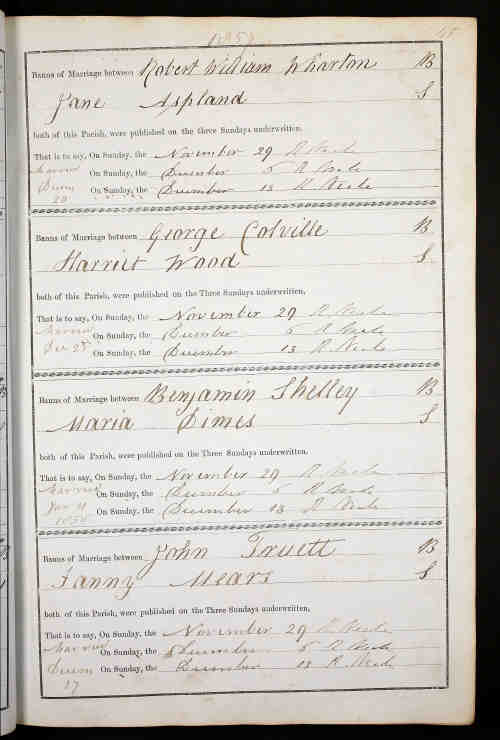 1857
Banns of Marriage between Robert William Wharton B
Jane Aspland S
both of this Parish, were published on the three Sundays underwritten.
That is to say, On Sunday, the November 29 R Neale
Married On Sunday, the December 6 R Neale
On Sunday, the December 13 R Neale
20
Banns of Marriage between George Colville B
Harriet Wood S
both of this Parish, were published on the Three Sundays underwritten,
That is to say, On Sunday, the November 29 R Neale
Married On Sunday, the December 6 R Neale
Dec 25 On Sunday, the December 13 R Neale
Banns of Marriage between Benjamin Shelley B
Maria Dimes S
both of this Parish, were published on the Three Sundays underwritten.
That is to say, On Sunday, the November 29 R Neale
Married On Sunday, the December 6 R Neale
Jan 11 On Sunday, the December 13 R Neale
1858
Banns of Marriage between John Truett B
Fanny Mears S
both of this Parish, were published on the Three Sundays underwritten,
That is to say, On Sunday, the November 29 R Neale
Married On Sunday, the December 6 R Neale
On Sunday, the December 13 R Neale
17